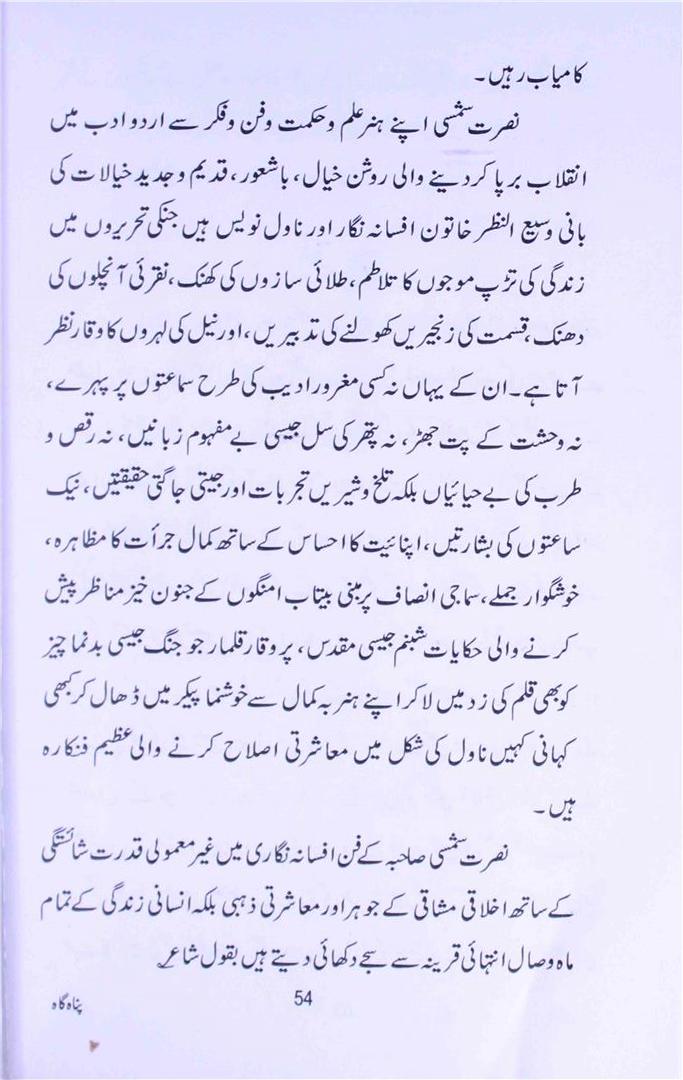 کامیاب رہیں۔
نصرت شمسی اپنے ہنر علم و حکمت و فن و فکر سے اردو ادب میں
انقلاب برپا کردینے والی روشن خیال، باشعور، قدیم و جدید خیالات کی
بانی وسیع النظر خاتون افسانہ نگار اور ناول نویس ہیں جنکی تحریروں میں
زندگی کی تڑپ موجوں کا تلاطم، طلائی سازوں کی کھنک، نقرئی آنچلوں کی
دھنک، قسمت کی زنجیریں کھولنے کی تدبیریں، اور نیل کی لہروں کا وقار نظر
آتا ہے۔ ان کے یہاں نہ کسی مغرور ادیب کی طرح سماعتوں پر پہرے،
نہ وحشت کے پت جھڑ، نہ پتھر کی سل جیسی بے مفہوم زبانیں، نہ رقص و
طرب کی بے حیائیاں بلکہ تلخ و شیریں تجربات اور جیتی جاگتی حقیقتیں، نیک
ساعتوں کی بشارتیں، اپنائیت کا احساس کے ساتھ کمال جرأت کا مظاہرہ،
خوشگوار جملے، سماجی انصاف پر مبنی بیتاب امنگوں کے جنون خیز مناظر پیش
کرنے والی حکایات شبنم جیسی مقدس، پروقار قلمار جو جنگ جیسی بدنما چیز
کو بھی قلم کی زد میں لاکر اپنے ہنر بہ کمال سے خوشنما پیکر میں ڈھال کر کبھی
کہانی کہیں ناول کی شکل میں معاشرتی اصلاح کرنے والی عظیم فنکارہ
ہیں۔
نصرت شمسی صاحبہ کے فن افسانہ نگاری میں غیر معمولی قدرت شائستگی
کے ساتھ اخلاقی مشاقی کے جوہر اور معاشرتی ذہبی بلکہ انسانی زندگی کے تمام
ماہ و صال انتہائی قرینہ سے سجے دکھائی دیتے ہیں بقول شاعر
54
پناہ گاہ